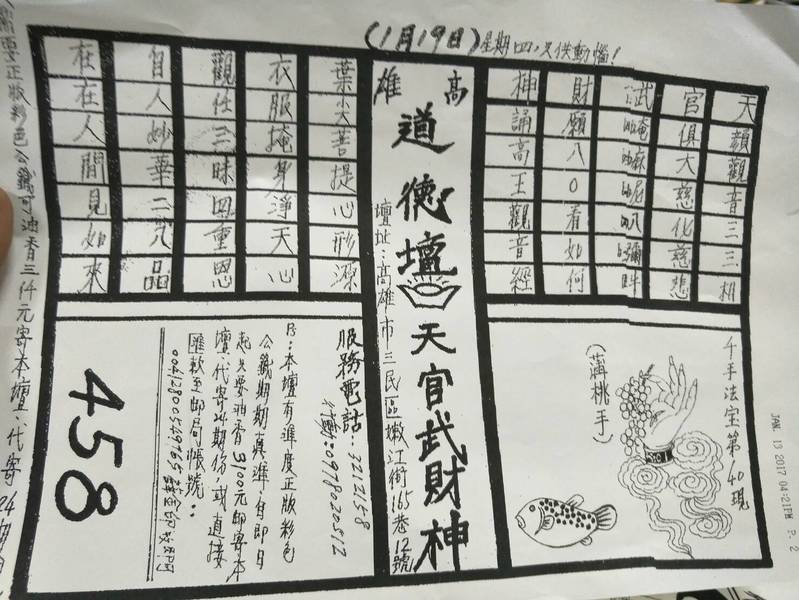 (1月19日)星期四.只供動惱!
天顏觀音三三相
官俱大慈化慈悲
武唵嘛呢叭彌吽
財願八○看如何
神誦高王觀音經
高雄
道德壇 天官武財神
壇址:高雄市三民區嫩江街165巷12號
葉尖菩提心形源
衣服掩身淨天心
觀任三昧四重恩
自人妙華二八品
在在人間見如來
千手法宝第40現
(蒲桃手)
服務電話:3212158
行動:0978020512
本壇有準度正版粉色
公籤期期真準.自即日
起只要油香3100元郵寄本
壇.代寄24期份,或直接
匯款至郵局帳號:
00412800549765
458
(需要正版粉色公籤可油香三仟元寄本壇:代寄24期
JAN. 13 2017 04:21PM P. 2